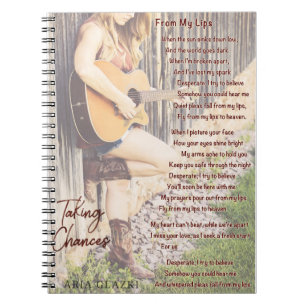 From My Lips
When the sun sinks down low,
And the world goes dark
When I'm broken apart,
And I've lost my spark
Desperate, I try to believe
Somehow you could hear me
Quiet pleas fall from my lips,
Fly from my lips to heaven.
When I picture your face
How your eyes shine bright
My arms ache to hold you
Keep you safe through the night
Desperate, I try to believe
You'll soon be here with me
My prayers pour out from my lips
Fly from my lips to heaven.
My heart can't bear, while we're apart
I miss your love, as I seek a fresh start
For us
Desperate, I try to believe
Somehow you could hear me
And whispered pleas fall from my lips,
Fly from my lips to heaven.
Taking
Chances
ARIA GLAZKI